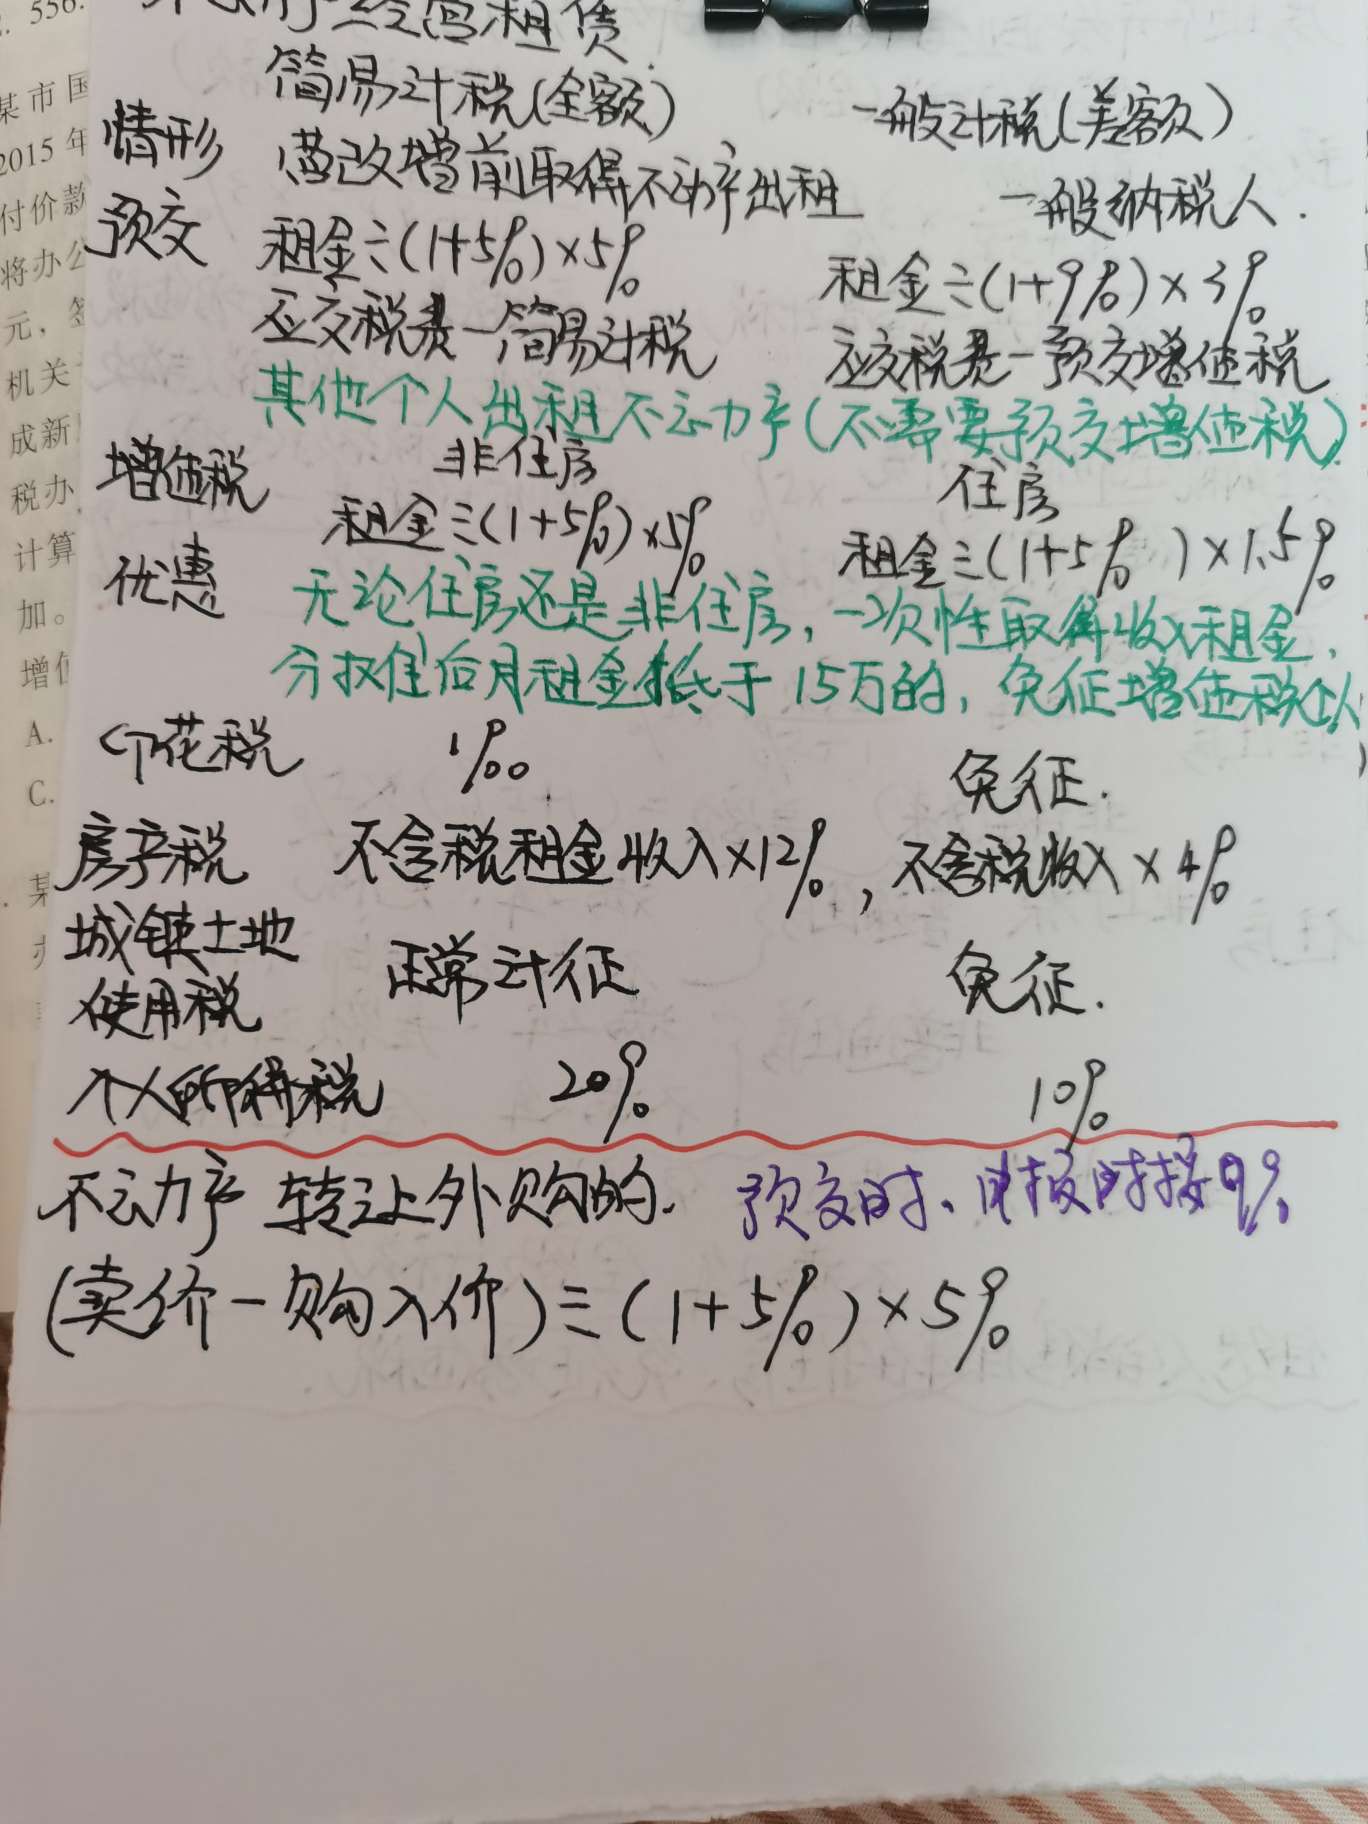 556.
某市国
2015年
付价款
将办公
元，签
机关
成新
税办
计算
加。
增值
A.
C.
某
经营租赁
简易计税(全额) 一般计税(差额)
情形 营改增前取得不动产出租 一般纳税人.
预交 租金÷(1+5%)×5% 租金÷(1+9%)×3%
应交税费－简易计税 应交税费－预交增值税
其他个人出租不动产(不需要预交增值税)
增值税 非住房 住房
租金÷(1+5%)×5% 租金÷(1+5%)×1.5%
优惠 无论住房还是非住房，一次性取得收入租金，
分摊后月租金低于15万的，免征增值税
印花税 1‰ 免征.
房产税 不含税租金收入×12%，不含税收入×4%
城镇土地
使用税 正常计征 免征.
个人所得税 20% 10%
不动产 转让外购的. 预交时、申报时按9%
(卖价－购入价)÷(1+5%)×5%